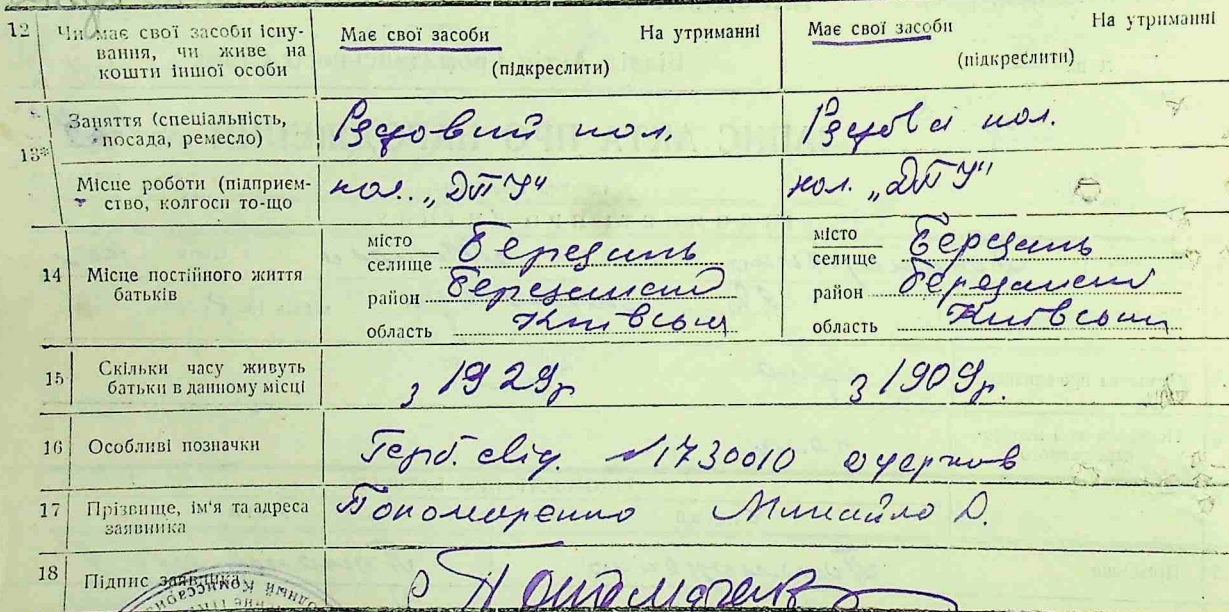 12 Чи має свої засоби існу-
вання, чи живе на
кошти іншої особи
Має свої засоби На утриманні
(підкреслити)
Має свої засоби На утриманні
(підкреслити)
13* Заняття (спеціальність,
посада, ремесло)
Рядовий кол. Рядова кол.
Місце роботи (підприєм-
ство, колгосп то-що
кол. „ДПУ" кол. „ДПУ"
14 Місце постійного життя
батьків
місто
селище Березань
район Березанський
область Київська
місто
селище Березань
район Березанський
область Київська
15 Скільки часу живуть
батьки в данному місці
з 1929р з 1909р.
16 Особливі позначки
Герб. свід. 1730010 одержав
17 Прізвище, ім'я та адреса
заявника
Пономаренко Михайло Д.
18 Підпис заявника